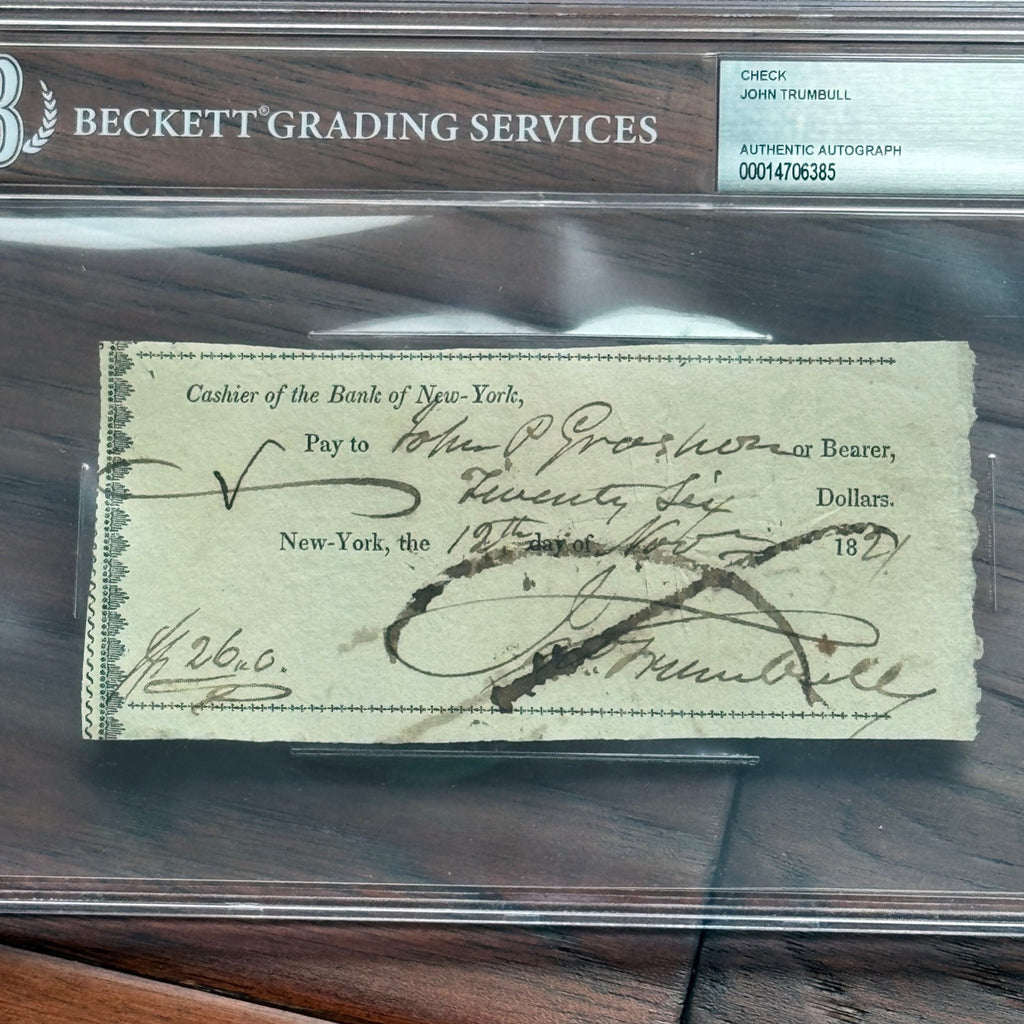 BECKETT® GRADING SERVICES
CHECK
JOHN TRUMBULL
AUTHENTIC AUTOGRAPH
00014706385
Cashier of the Bank of New-York,
Pay to John P Groshon or Bearer,
Twenty Six Dollars.
New-York, the 12th day of Nov 1821
Jno. Trumbull
$26.0.